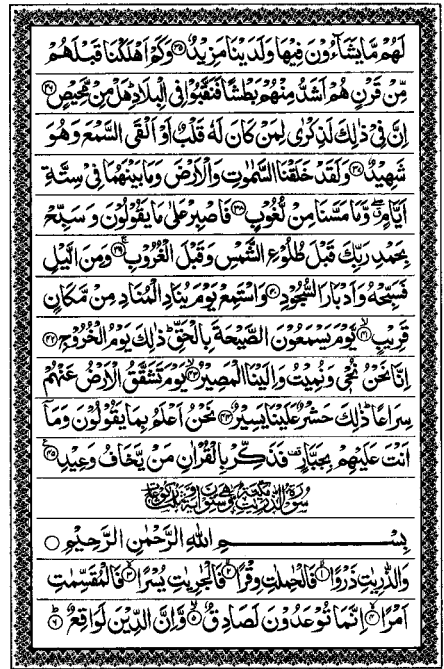 لَهُمۡ مَّا يَشَآءُوۡنَ فِيۡهَا وَلَدَيۡنَا مَزِيۡدٌ ﴿۳۵﴾ وَكَمۡ اَهۡلَكۡنَا قَبۡلَهُمۡ
مِّنۡ قَرۡنٍ هُمۡ اَشَدُّ مِنۡهُمۡ بَطۡشًا فَنَقَّبُوۡا فِى الۡبِلَادِ ؕ هَلۡ مِنۡ مَّحِيۡصٍ ﴿۳۶﴾
اِنَّ فِىۡ ذٰلِكَ لَذِكۡرٰى لِمَنۡ كَانَ لَهٗ قَلۡبٌ اَوۡ اَلۡقَى السَّمۡعَ وَهُوَ
شَهِيۡدٌ ﴿۳۷﴾ وَلَقَدۡ خَلَقۡنَا السَّمٰوٰتِ وَالۡاَرۡضَ وَمَا بَيۡنَهُمَا فِىۡ سِتَّةِ
اَيَّامٍ ۖ وَّمَا مَسَّنَا مِنۡ لُّغُوۡبٍ ﴿۳۸﴾ فَاصۡبِرۡ عَلٰى مَا يَقُوۡلُوۡنَ وَسَبِّحۡ
بِحَمۡدِ رَبِّكَ قَبۡلَ طُلُوۡعِ الشَّمۡسِ وَقَبۡلَ الۡغُرُوۡبِ ﴿۳۹﴾ وَمِنَ الَّيۡلِ
فَسَبِّحۡهُ وَاَدۡبَارَ السُّجُوۡدِ ﴿۴۰﴾ وَاسۡتَمِعۡ يَوۡمَ يُنَادِ الۡمُنَادِ مِنۡ مَّكَانٍ
قَرِيۡبٍ ﴿۴۱﴾ يَّوۡمَ يَسۡمَعُوۡنَ الصَّيۡحَةَ بِالۡحَقِّ ؕ ذٰلِكَ يَوۡمُ الۡخُرُوۡجِ ﴿۴۲﴾
اِنَّا نَحۡنُ نُحۡىٖ وَنُمِيۡتُ وَاِلَيۡنَا الۡمَصِيۡرُ ﴿۴۳﴾ يَوۡمَ تَشَقَّقُ الۡاَرۡضُ عَنۡهُمۡ
سِرَاعًا ؕ ذٰلِكَ حَشۡرٌ عَلَيۡنَا يَسِيۡرٌ ﴿۴۴﴾ نَحۡنُ اَعۡلَمُ بِمَا يَقُوۡلُوۡنَ وَمَاۤ
اَنۡتَ عَلَيۡهِمۡ بِجَبَّارٍ ۟ فَذَكِّرۡ بِالۡقُرۡاٰنِ مَنۡ يَّخَافُ وَعِيۡدِ ﴿۴۵﴾
سُوۡرَةُ الذّٰرِيٰتِ مَكِّيَّةٌ
بِسۡمِ اللهِ الرَّحۡمٰنِ الرَّحِيۡمِ ○
وَالذّٰرِيٰتِ ذَرۡوًا ﴿۱﴾ فَالۡحٰمِلٰتِ وِقۡرًا ﴿۲﴾ فَالۡجٰرِيٰتِ يُسۡرًا ﴿۳﴾ فَالۡمُقَسِّمٰتِ
اَمۡرًا ﴿۴﴾ اِنَّمَا تُوۡعَدُوۡنَ لَصَادِقٌ ﴿۵﴾ وَّاِنَّ الدِّيۡنَ لَوَاقِعٌ ﴿۶﴾